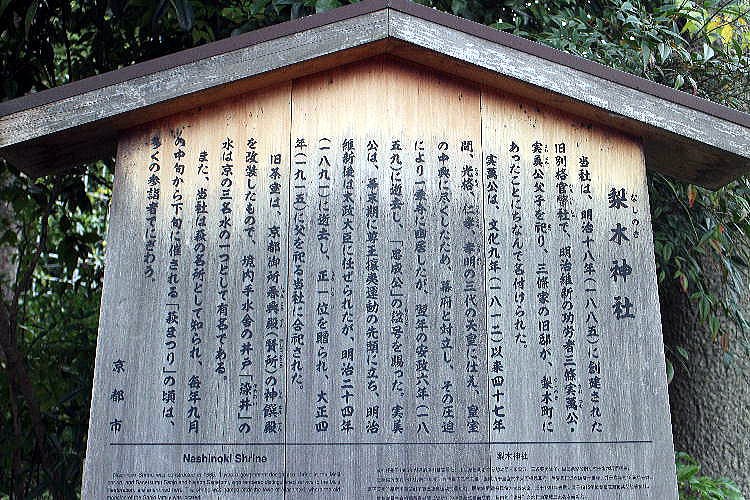 梨木神社
なしのき
当社は、明治十八年(一八八五)に創建された
旧別格官幣社で、明治維新の功労者三條実萬公・
実美公父子を祀り、三條家の旧邸が、梨木町に
あったことにちなんで名付けられた。
実萬公は、文化九年(一八一二)以来四十七年
間、光格、仁孝、孝明の三代の天皇に仕え、皇室
の中興に尽くしたため、幕府と対立し、その圧迫
により一乗寺に幽居したが、翌年の安政六年(一八
五九)に逝去し、「忠成公」の諡号を賜った。実美
公は、幕末期に尊王攘夷運動の先頭に立ち、明治
維新後は太政大臣に任ぜられたが、明治二十四年
(一八九一)に逝去し、正一位を贈られ、大正四
年(一九一五)に父を祀る当社に合祀された。
旧茶室は、京都御所春興殿(賢所)の神饌殿
を改装したもので、境内手水舎の井戸「染井」の
水は京の三名水の一つとして有名である。
また、当社は萩の名所として知られ、毎年九月
の中旬から下旬に催される「萩まつり」の頃は、
多くの参詣者でにぎわう。
京都市
Nashinoki Shrine
梨木神社